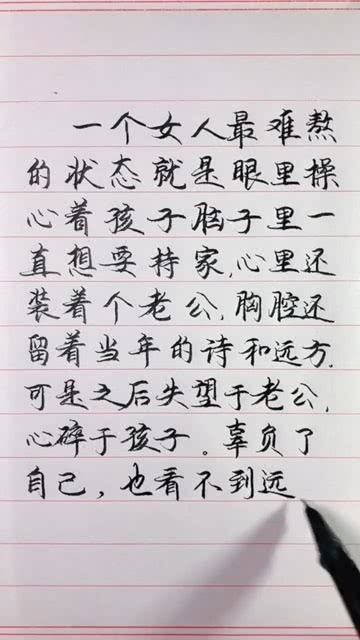 一个女人最难熬
的状态就是眼里操
心着孩子脑子里一
直想要持家,心里还
装着个老公,胸腔还
留着当年的诗和远方.
可是之后失望于老公,
心碎于孩子。辜负了
自己,也看不到远